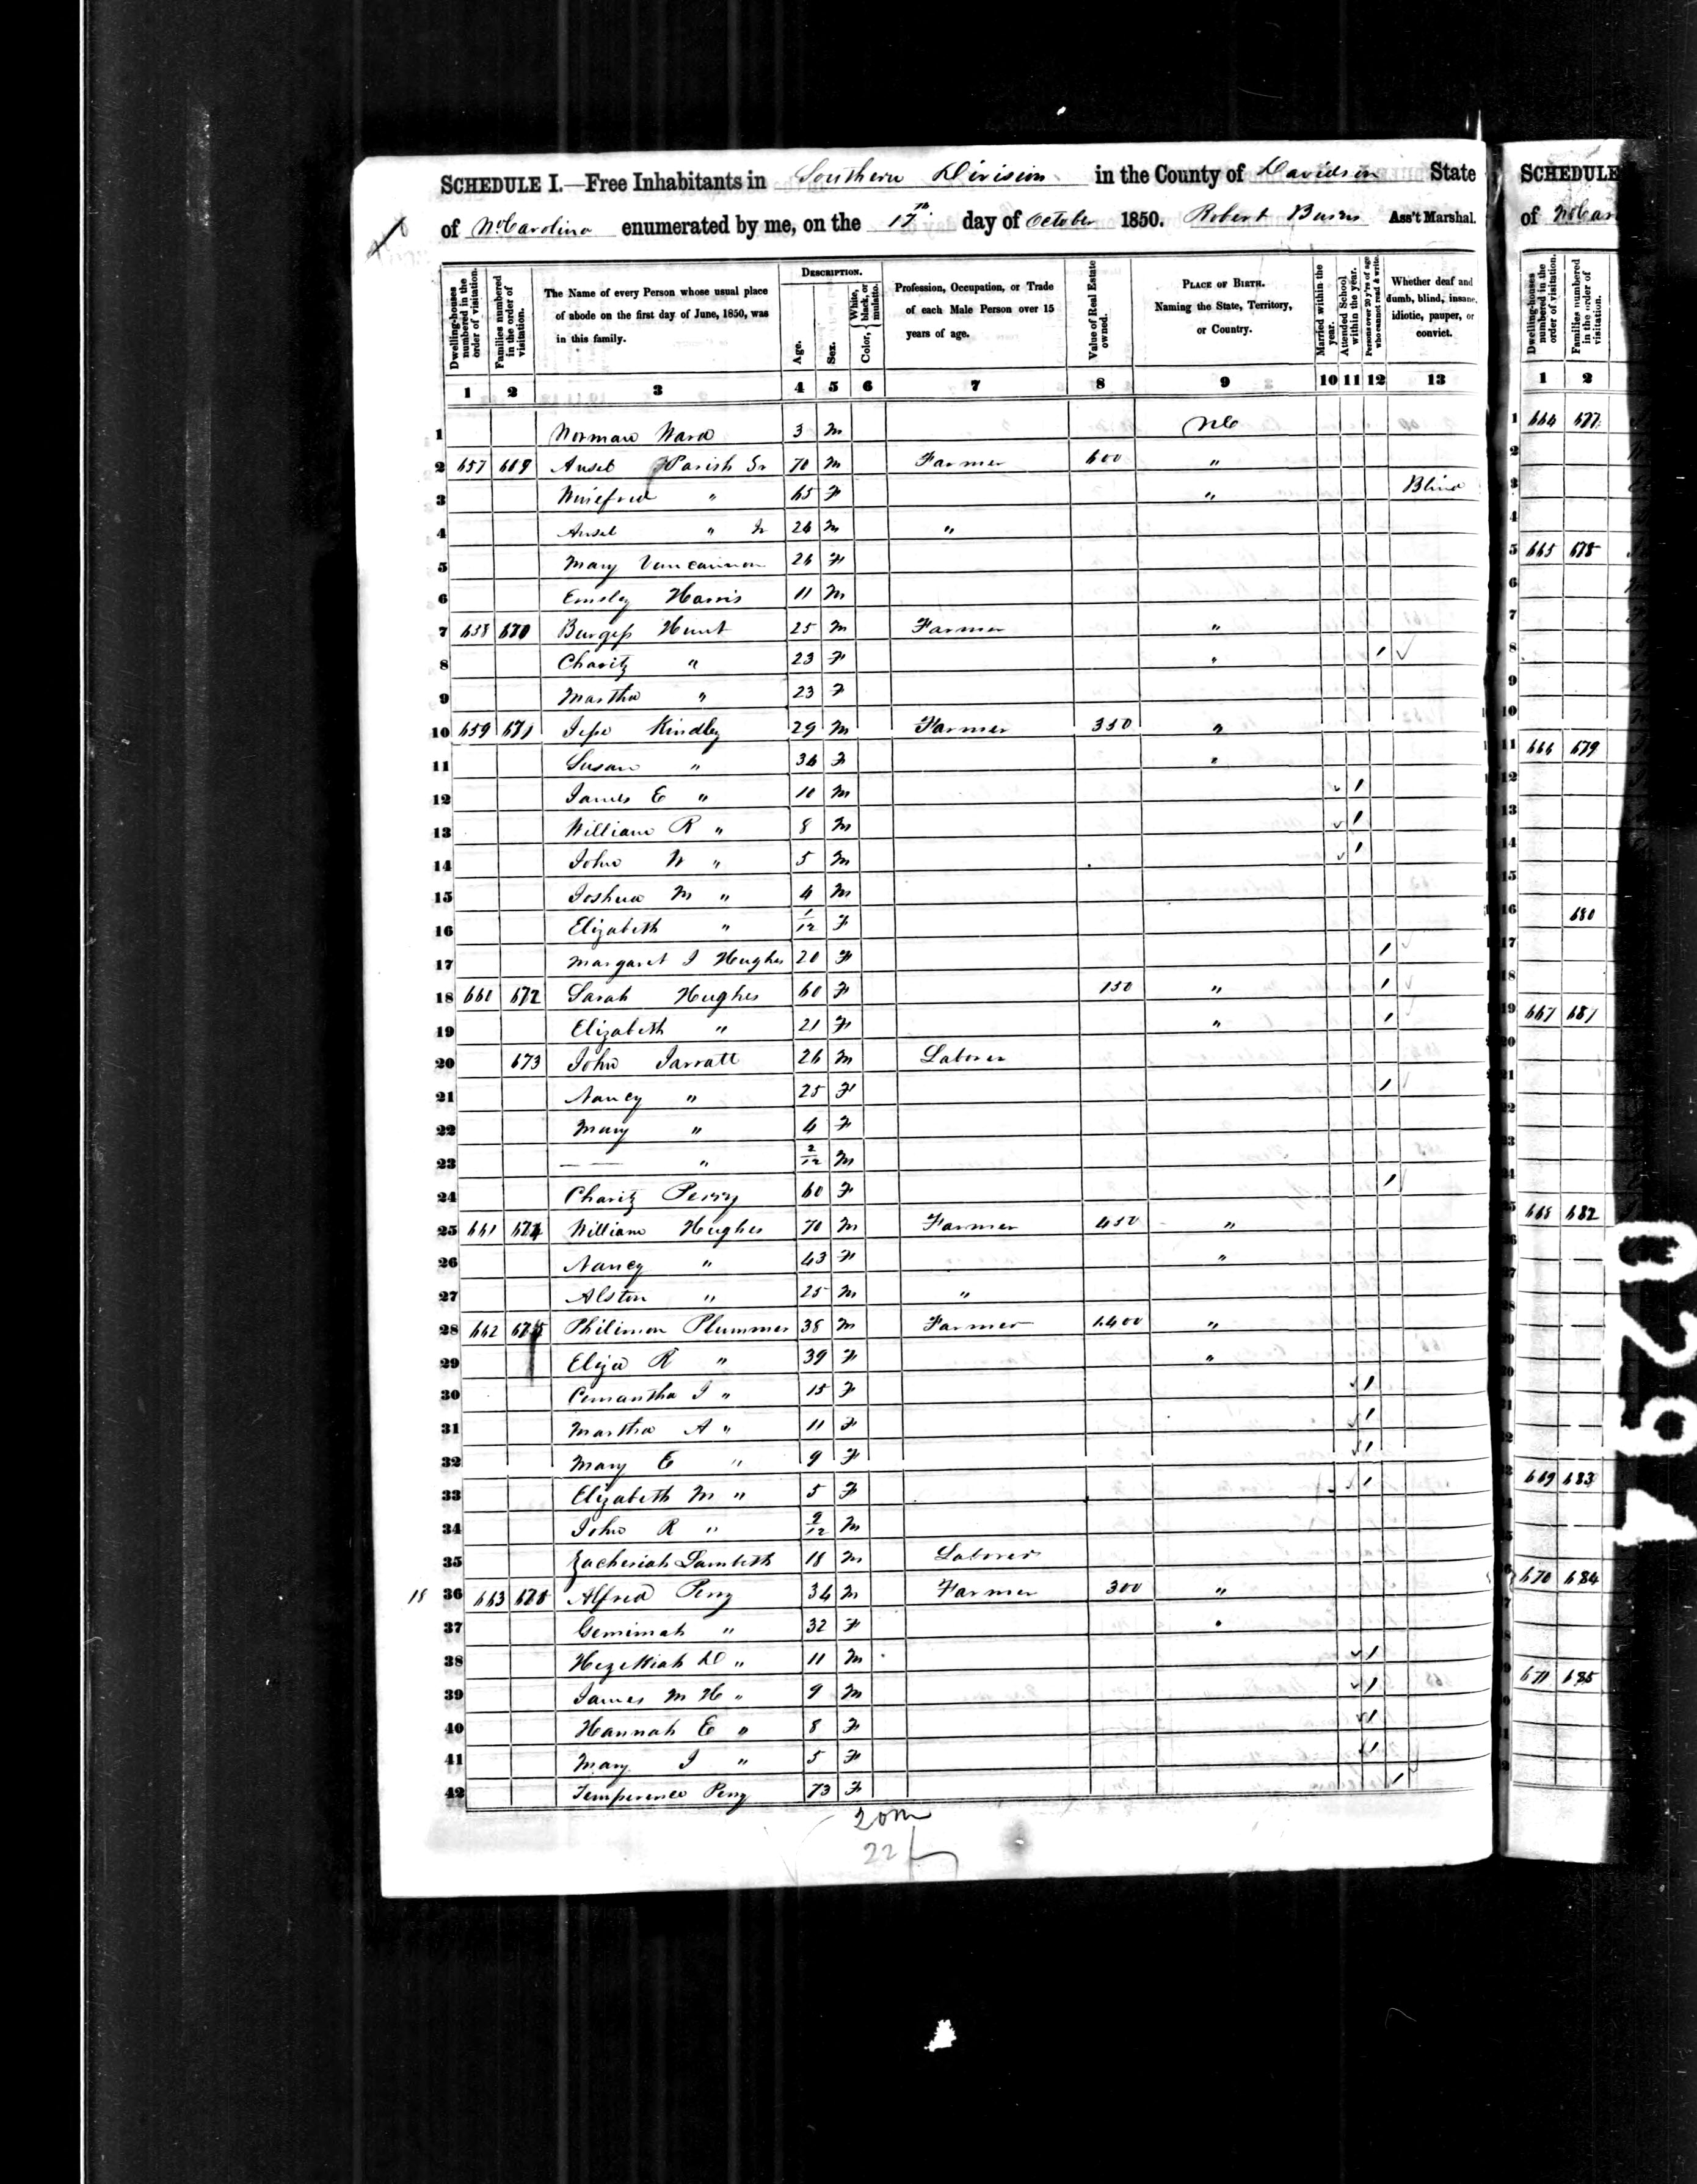 SCHEDULE I.—Free Inhabitants in Southern Division in the County of Davidson State
of No Carolina enumerated by me, on the 17th day of October 1850. Robert Burns Ass't Marshal.
Dwelling-houses numbered in the order of visitation.
Families numbered in the order of visitation.
The Name of every Person whose usual place of abode on the first day of June, 1850, was in this family.
DESCRIPTION.
Age.
Sex.
Color, { White, black, or mulatto.
Profession, Occupation, or Trade of each Male Person over 15 years of age.
Value of Real Estate owned.
PLACE OF BIRTH. Naming the State, Territory, or Country.
Married within the year.
Attended School within the year.
Persons over 20 y'rs of age who cannot read & write.
Whether deaf and dumb, blind, insane, idiotic, pauper, or convict.
1 2 3 4 5 6 7 8 9 10 11 12 13
1 Norman Ward 3 M NC
2 657 669 Ansel Parish Sr 70 M Farmer 600 "
3 Winefred " 65 F " Blind
4 Ansel " Jr 26 M "
5 Mary Vuncannon 26 F
6 Emsley Harris 11 M
7 658 670 Burgess Hunt 25 M Farmer "
8 Charity " 23 F " / ✓
9 Martha " 23 F
10 659 671 Jesse Kindley 29 M Farmer 350 "
11 Susan " 36 F "
12 James E " 10 M ✓ /
13 William R " 8 M ✓ /
14 John W " 5 M ✓ /
15 Joshua M " 4 M
16 Elizabeth " 1/12 F
17 Margaret J Hughes 20 F / ✓
18 660 672 Sarah Hughes 60 F 150 " / ✓
19 Elizabeth " 21 F " /
20 673 John Jarratt 26 M Laborer
21 Nancy " 25 F / ✓
22 Mary " 4 F
23 — — " 2/12 M
24 Charity Perry 60 F /
25 661 674 William Hughes 70 M Farmer 450 "
26 Nancy " 43 F "
27 Alston " 25 M "
28 662 675 Philimon Plummer 38 M Farmer 1400 "
29 Eliza R " 39 F "
30 Cemantha J " 15 F ✓ /
31 Martha A " 11 F ✓ /
32 Mary E " 9 F ✓ /
33 Elizabeth M " 5 F ✓ /
34 John R " 9/12 M
35 Zacheriah Lambeth 18 M Laborer
18 36 663 676 Alfred Perry 34 M Farmer 300 "
37 Gemimah " 32 F "
38 Hezekiah D " 11 M ✓ /
39 James M H " 9 M ✓ /
40 Hannah E " 8 F ✓ /
41 Mary J " 5 F ✓ /
42 Temperence Perry 73 F / ✓
20 m
22 f
SCHEDULE
of No Car
Dwelling-houses numbered in the order of visitation.
Families numbered in the order of visitation.
1 2
1 664 677
5 665 678
11 666 679
16 680
19 667 681
668 682
669 683
670 684
671 685
0294